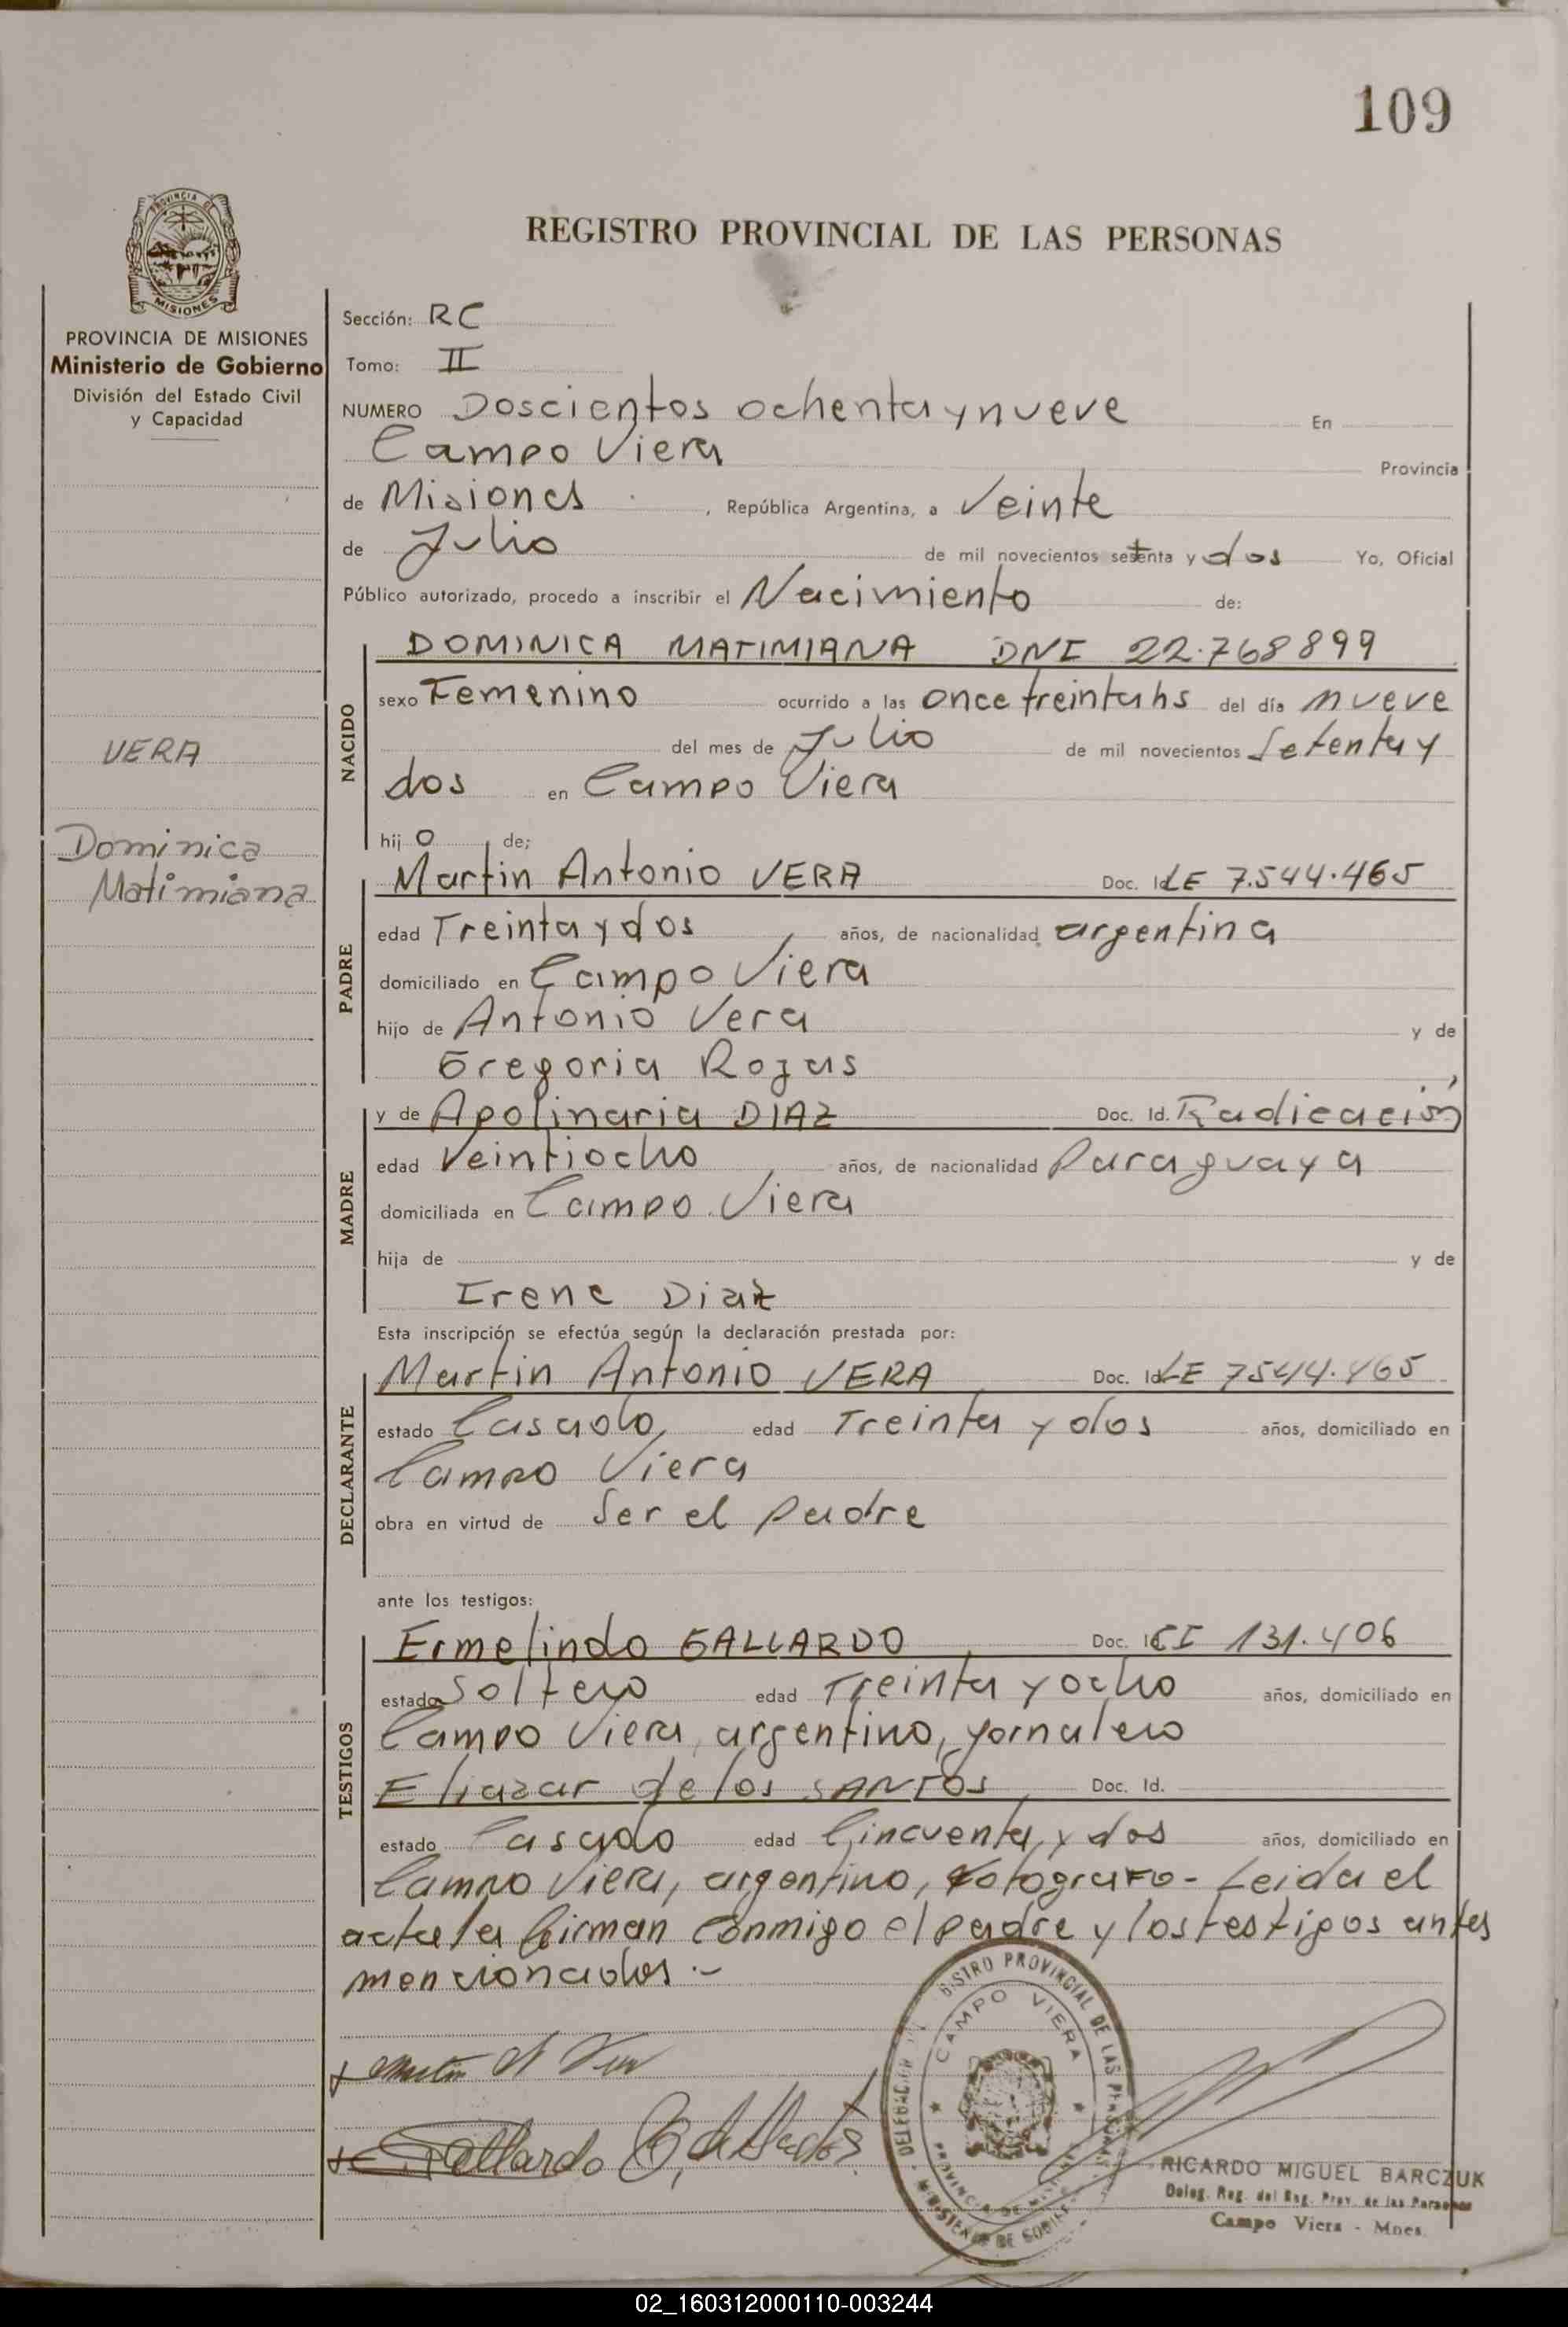 109
REGISTRO PROVINCIAL DE LAS PERSONAS
PROVINCIA DE
MISIONES
PROVINCIA DE MISIONES
Ministerio de Gobierno
División del Estado Civil
y Capacidad
VERA
Dominica
Matimiana
Sección: RC
Tomo: II
NUMERO Doscientos ochenta y nueve En
Campo Viera Provincia
de Misiones, República Argentina, a Veinte
de Julio de mil novecientos setenta y dos Yo, Oficial
Público autorizado, procedo a inscribir el Nacimiento de:
NACIDO
DOMINICA MATIMIANA DNI 22.768899
sexo Femenino ocurrido a las once treinta hs del día nueve
del mes de Julio de mil novecientos Setenta y
dos en Campo Viera
hij o de;
PADRE
Martin Antonio VERA Doc. Id LE 7.544.465
edad Treinta y dos, años, de nacionalidad argentina
domiciliado en Campo Viera
hijo de Antonio Vera y de
Gregoria Rojas,
MADRE
y de Apolinaria DIAZ Doc. Id. Radicación
edad Veintiocho, años, de nacionalidad Paraguaya
domiciliada en Campo Viera
hija de y de
Irene Diaz
Esta inscripción se efectúa según la declaración prestada por:
DECLARANTE
Martin Antonio VERA Doc. Id LE 7544.465
estado Casado, edad Treinta y dos años, domiciliado en
Campo Viera
obra en virtud de Ser el Padre
ante los testigos:
TESTIGOS
Ermelindo GALLARDO, Doc. I CI 131.406
estado Soltero edad Treinta y ocho años, domiciliado en
Campo Viera, argentino, jornalero
Eliazar de los SANTOS, Doc. Id.
estado Casado edad Cincuenta y dos años, domiciliado en
Campo Viera, argentino, fotografo - Leida el
acta la firman conmigo el padre y los testigos antes
mencionados.-
Martin A Vera
Gallardo E. de los Santos
REGISTRO PROVINCIAL DE LAS PERSONAS
CAMPO VIERA
DELEGACION
PROVINCIA DE MISIONES
MINISTERIO DE GOBIERNO
RICARDO MIGUEL BARCZUK
Deleg. Reg. del Reg. Prov. de las Personas
Campo Viera - Mnes.
02_160312000110-003244